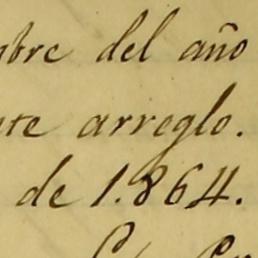 bre del año
te arreglo.
de 1.864.